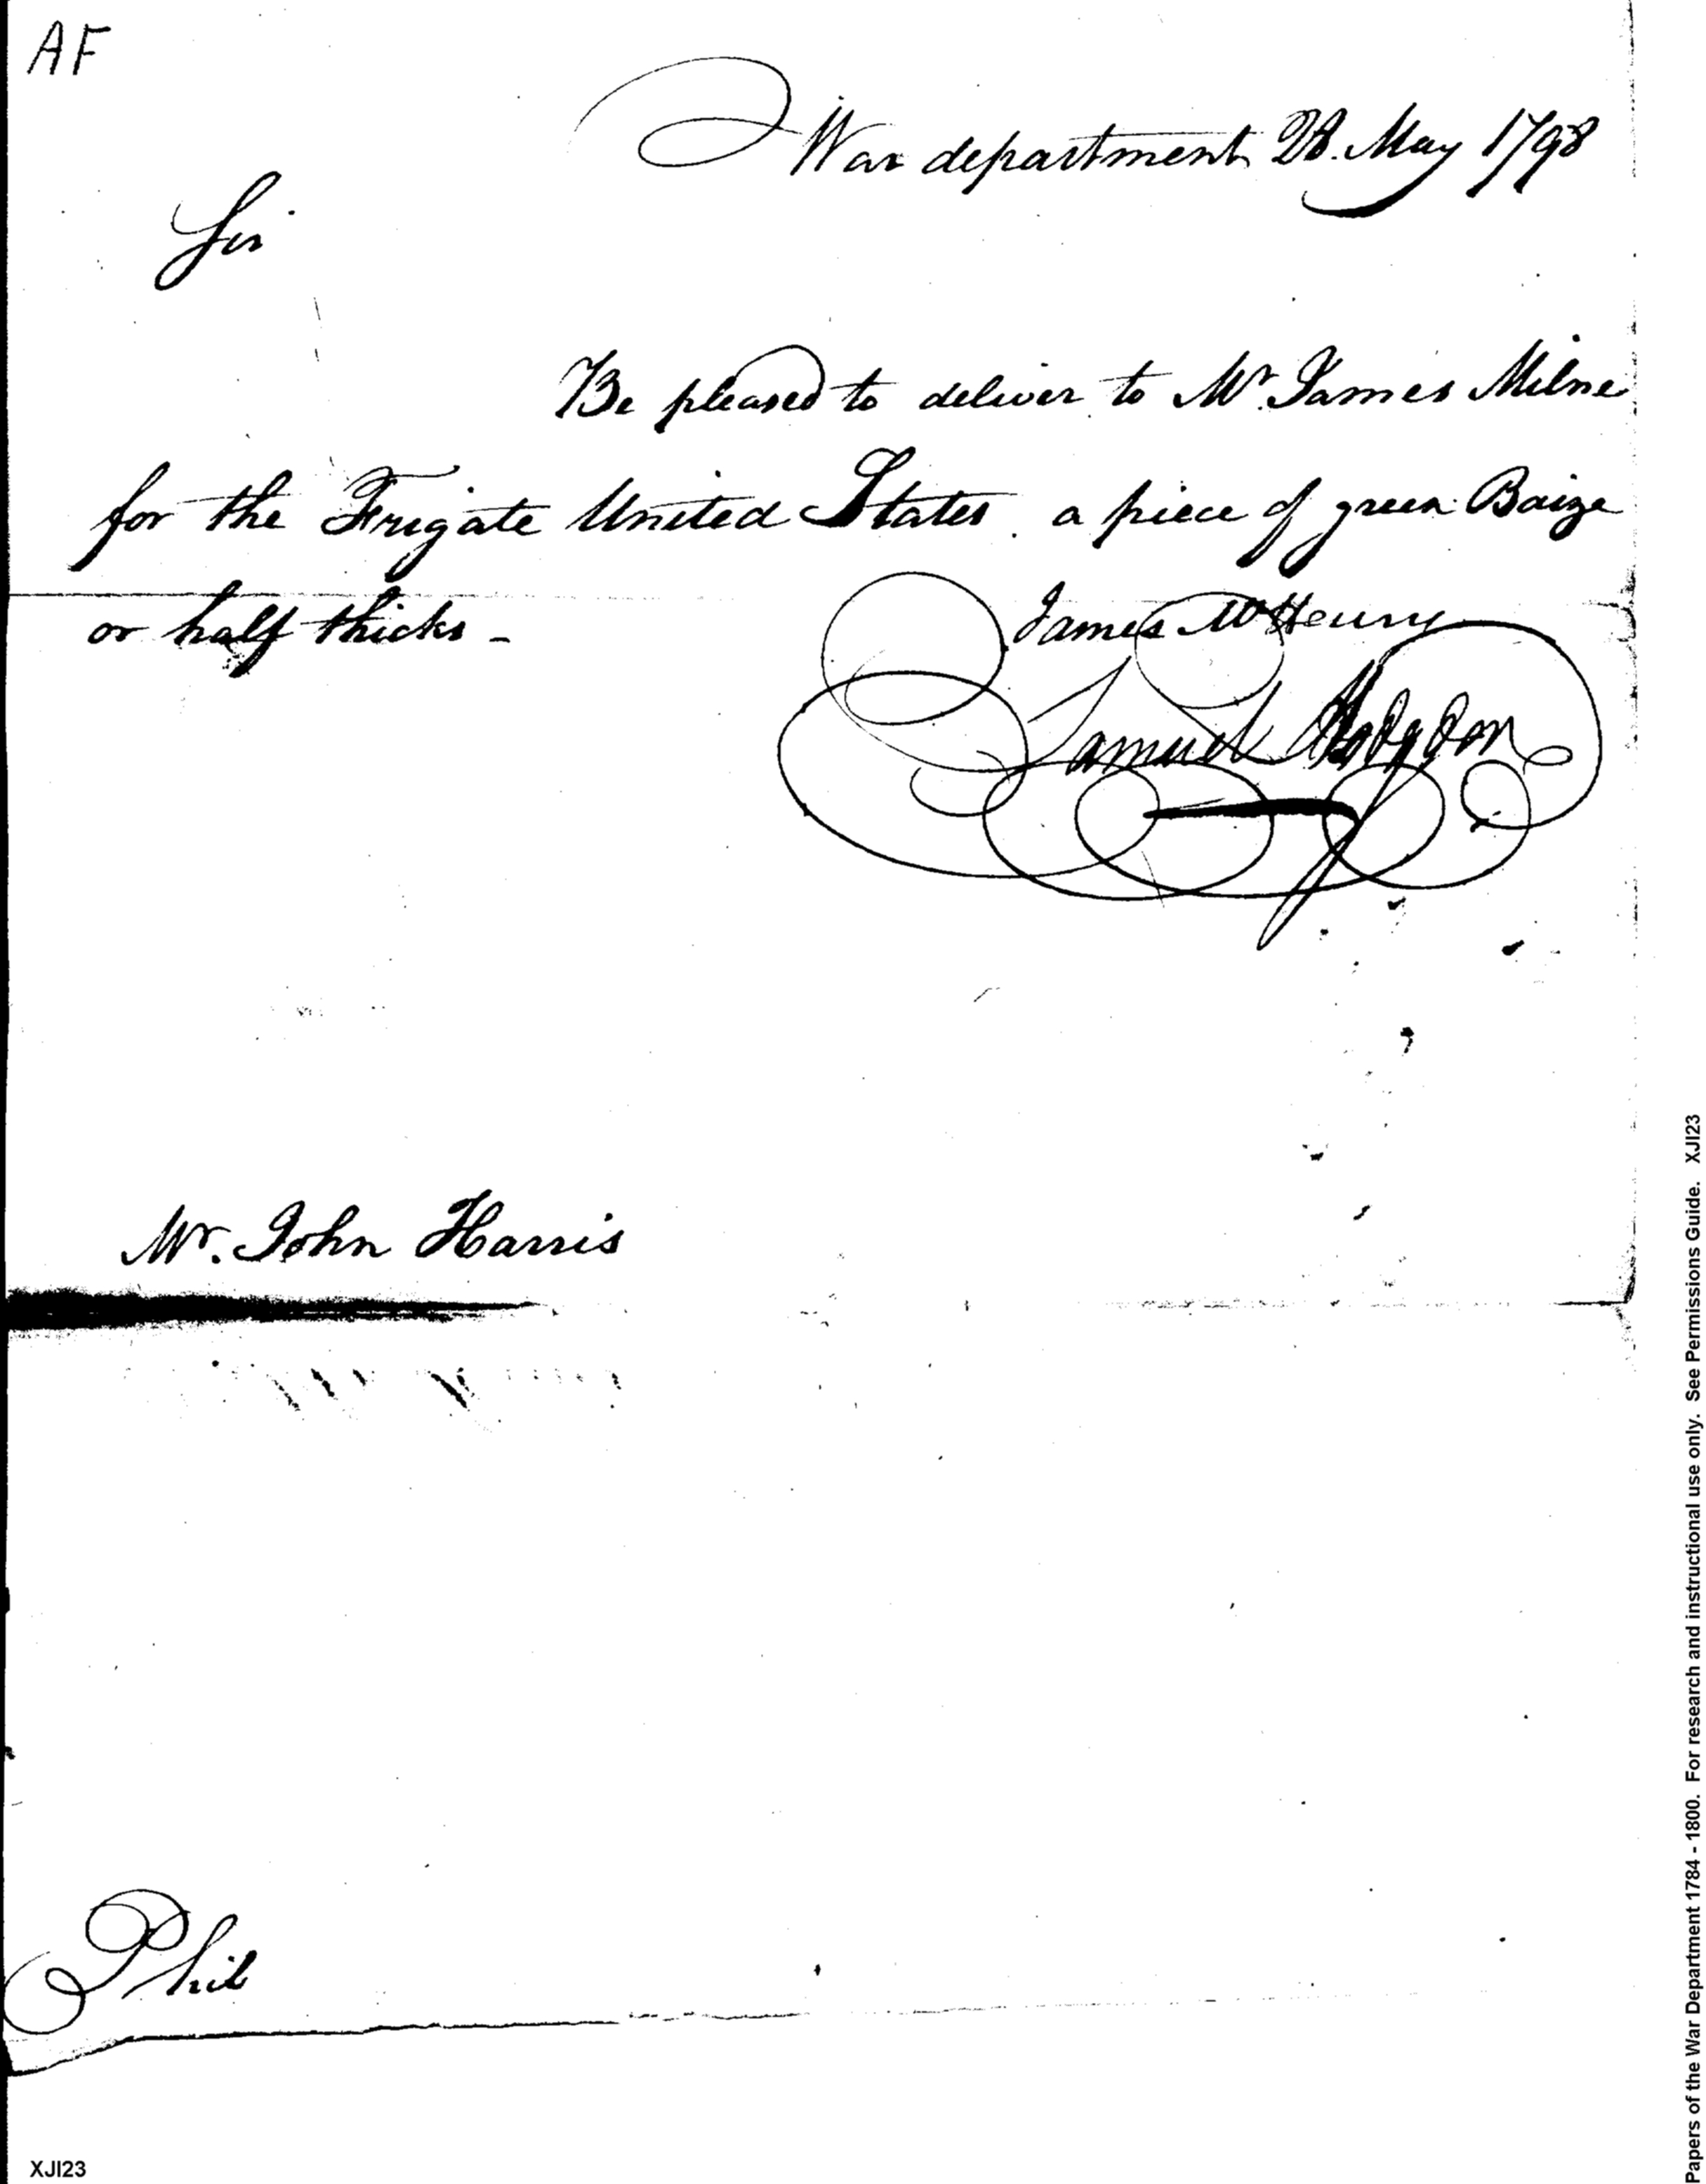 AF
War department 28. May 1798
Sir
Be pleased to deliver to Mr. James Milne
for the Frigate United States. a piece of green Baize
or half thicks -
James McHenry
Samuel Hodgdon
Mr. John Harris
Phil
XJI23
Papers of the War Department 1784 - 1800. For research and instructional use only. See Permissions Guide. XJI23